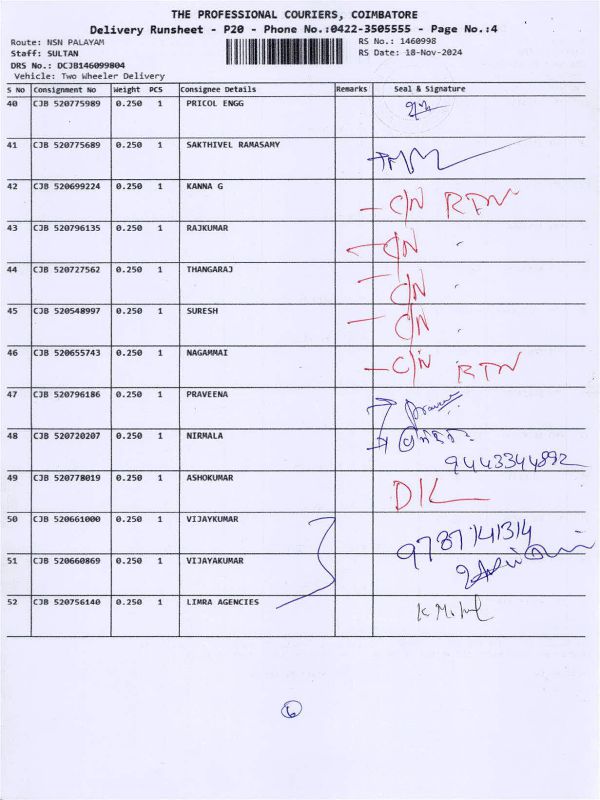 THE PROFESSIONAL COURIERS, COIMBATORE
Delivery Runsheet - P20 - Phone No.:0422-3505555 - Page No.:4
Route: NSN PALAYAM
RS No.: 1460998
Staff: SULTAN
RS Date: 18-Nov-2024
DRS No.: DCJB146099804
Vehicle: Two Wheeler Delivery
S No Consignment No Weight PCS Consignee Details Remarks Seal & Signature
40 CJB 520775989 0.250 1 PRICOL ENGG
41 CJB 520775689 0.250 1 SAKTHIVEL RAMASAMY
42 CJB 520699224 0.250 1 KANNA G - C/N RTN
43 CJB 520796135 0.250 1 RAJKUMAR - C/N "
44 CJB 520727562 0.250 1 THANGARAJ - C/N "
45 CJB 520548997 0.250 1 SURESH - C/N "
46 CJB 520655743 0.250 1 NAGAMMAI - C/N RTN
47 CJB 520796186 0.250 1 PRAVEENA
48 CJB 520720207 0.250 1 NIRMALA
9443344892
49 CJB 520778019 0.250 1 ASHOKUMAR D/L
50 CJB 520661000 0.250 1 VIJAYKUMAR 9787141314
51 CJB 520660869 0.250 1 VIJAYAKUMAR
52 CJB 520756140 0.250 1 LIMRA AGENCIES
6